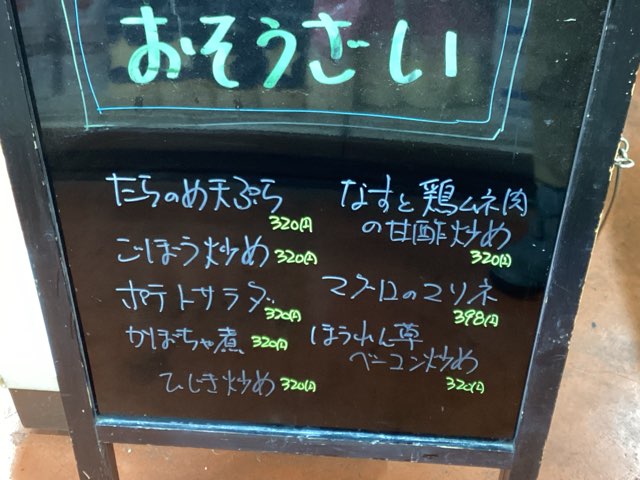 おそうざい
たらのめ天ぷら
320円
ごぼう炒め 320円
ポテトサラダ
320円
かぼちゃ煮 320円
ひじき炒め 320円
なすと鶏ムネ肉
の甘酢炒め
320円
マグロのマリネ
398円
ほうれん草
ベーコン炒め
320円